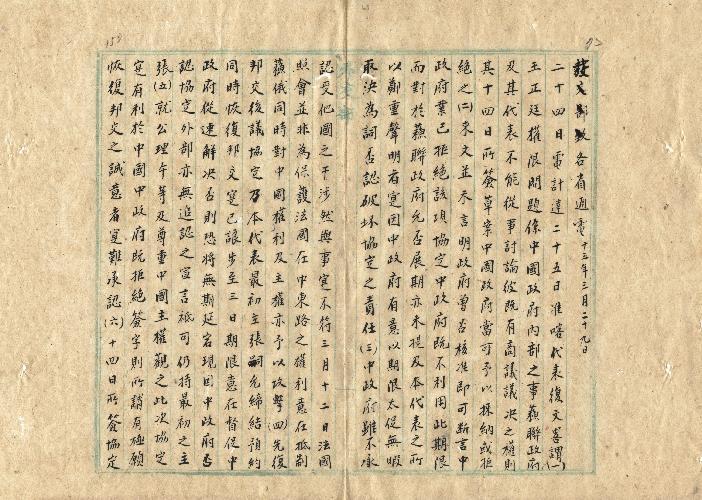 發文部致各省通電十三年三月二十九日
二十四日電計達二十五日准喀代表復文畧謂(一)
王正廷權限問題係中國政府內部之事蘇聯政府
及其代表不能從事討論彼既有商議議決之權則
其十四日所簽草案中國政府當可予以採納或拒
絶之(二)來文並未言明政府曾否核准即可斷言中
政府業已拒絕該項協定中政府既不利用此期限
而對於蘇聯政府允否展期亦未提及本代表之所
以鄭重聲明者實因中政府有意以期限太促無暇
取決為詞否認破坏協定之責任(三)中政府雖不承
認受他國之干涉然與事實不符三月十二日法國
照會並非為保護法國在中東路之權利意在抵制
蘇俄同時對中國權利及主權亦予以攻擊(四)先復
邦交後議協定乃本代表最初主張嗣允締結預約
同時恢復邦交實已讓步至三日期限意在督促中
政府從速解決否則恐將無期延宕現因中政府否
認協定外部亦無追認之宣言祗可仍持最初之主
張(五)就公理平等及尊重中國主權觀之此次協定
實有利於中國中政府既拒絕簽字則所謂有極願
恢復邦交之誠意者實難承認(六)十四日所簽協定